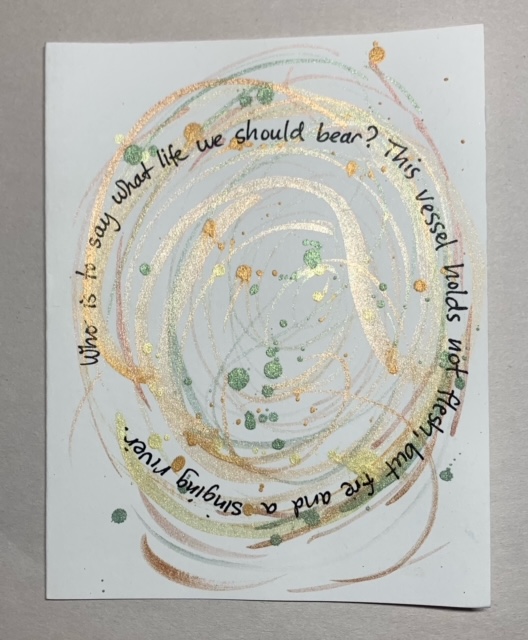 Who is to say what life we should bear? This vessel holds not flesh, but fire and a singing river.